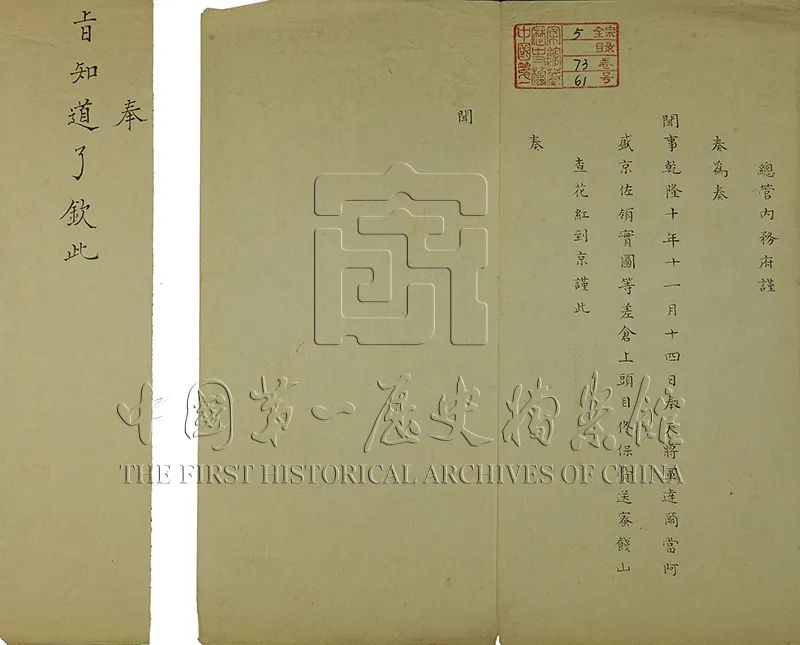 總管內務府謹
奏爲奏
聞事乾隆十年十一月十四日奉天將軍達爾當阿
盛京佐領實圖等差倉上頭目佟保送蜜餞山
查花紅到京謹此
奏
聞
奉
旨知道了欽此
全宗 5
卷号 73
61
中國第一歷史檔案館
中国第一历史档案馆
THE FIRST HISTORICAL ARCHIVES OF CHINA